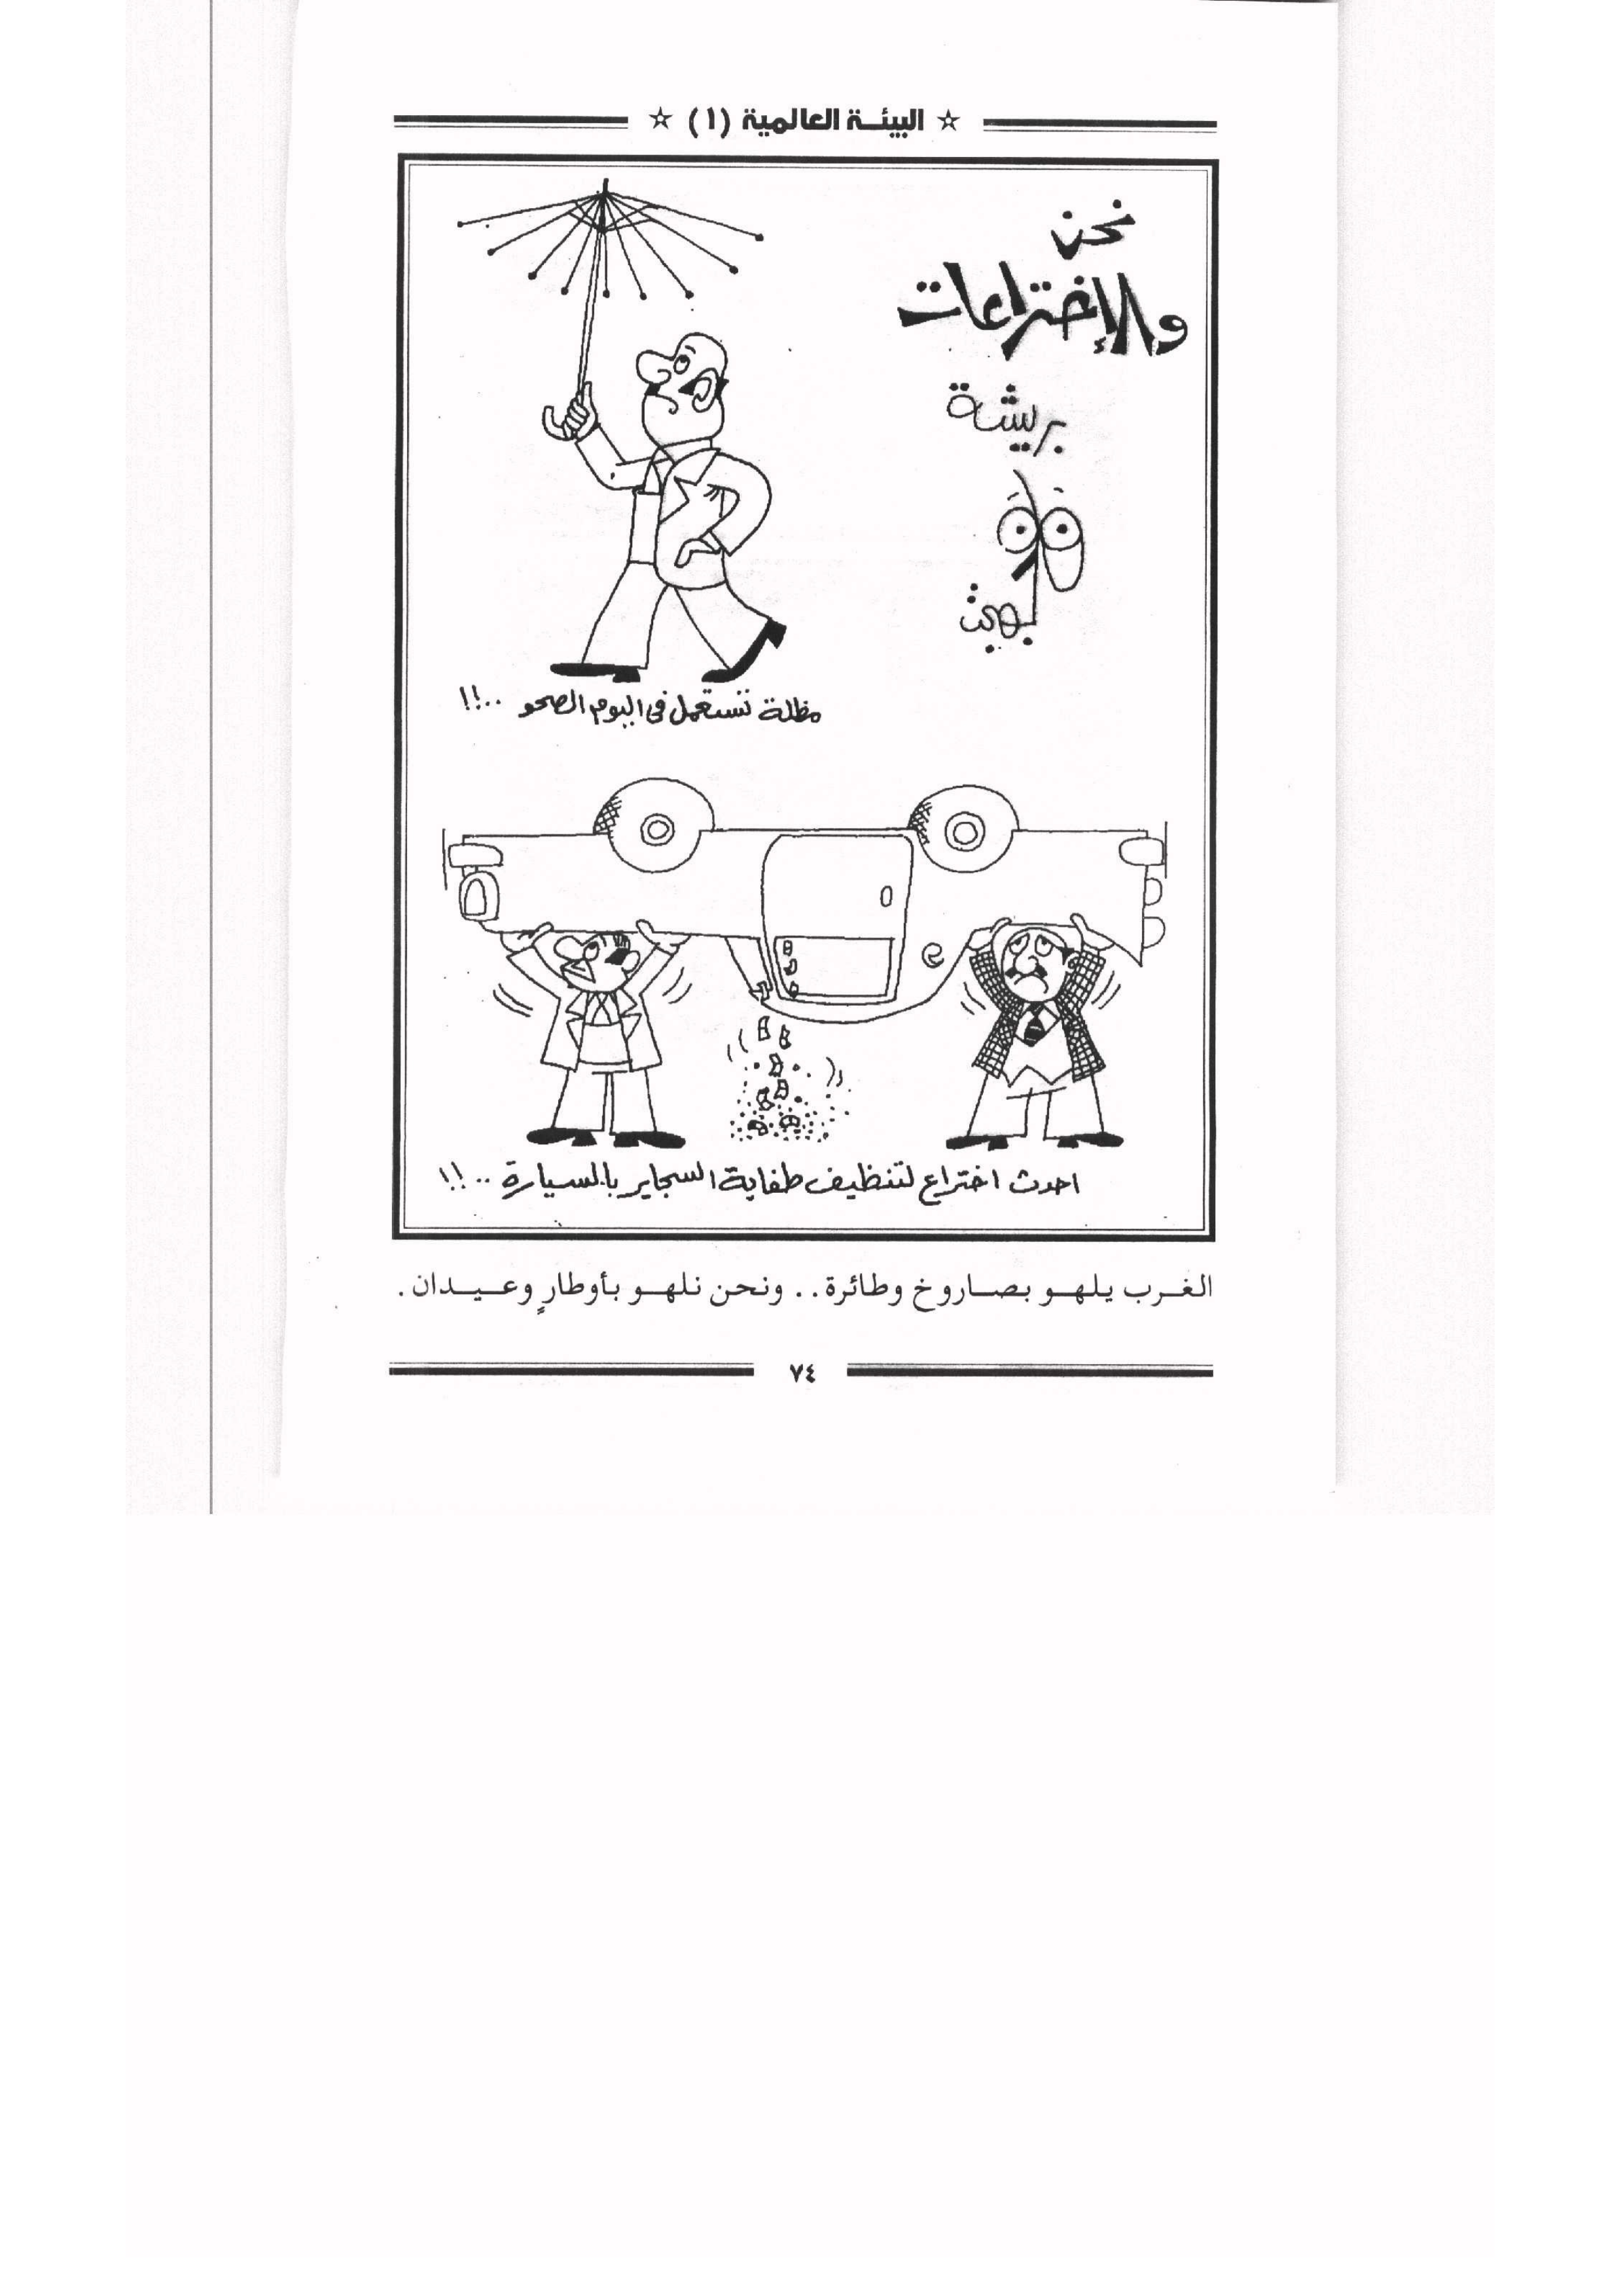 ☆ البيئة العالمية (١) ☆
نحن
والإختراعات
بريشة
بهجت
مظلة تستعمل في اليوم الصحو ..!!
احدث اختراع لتنظيف طفاية السجاير بالسيارة ..!!
الغرب يلهو بصاروخ وطائرة.. ونحن نلهو بأوطارٍ وعيدان.
٧٤